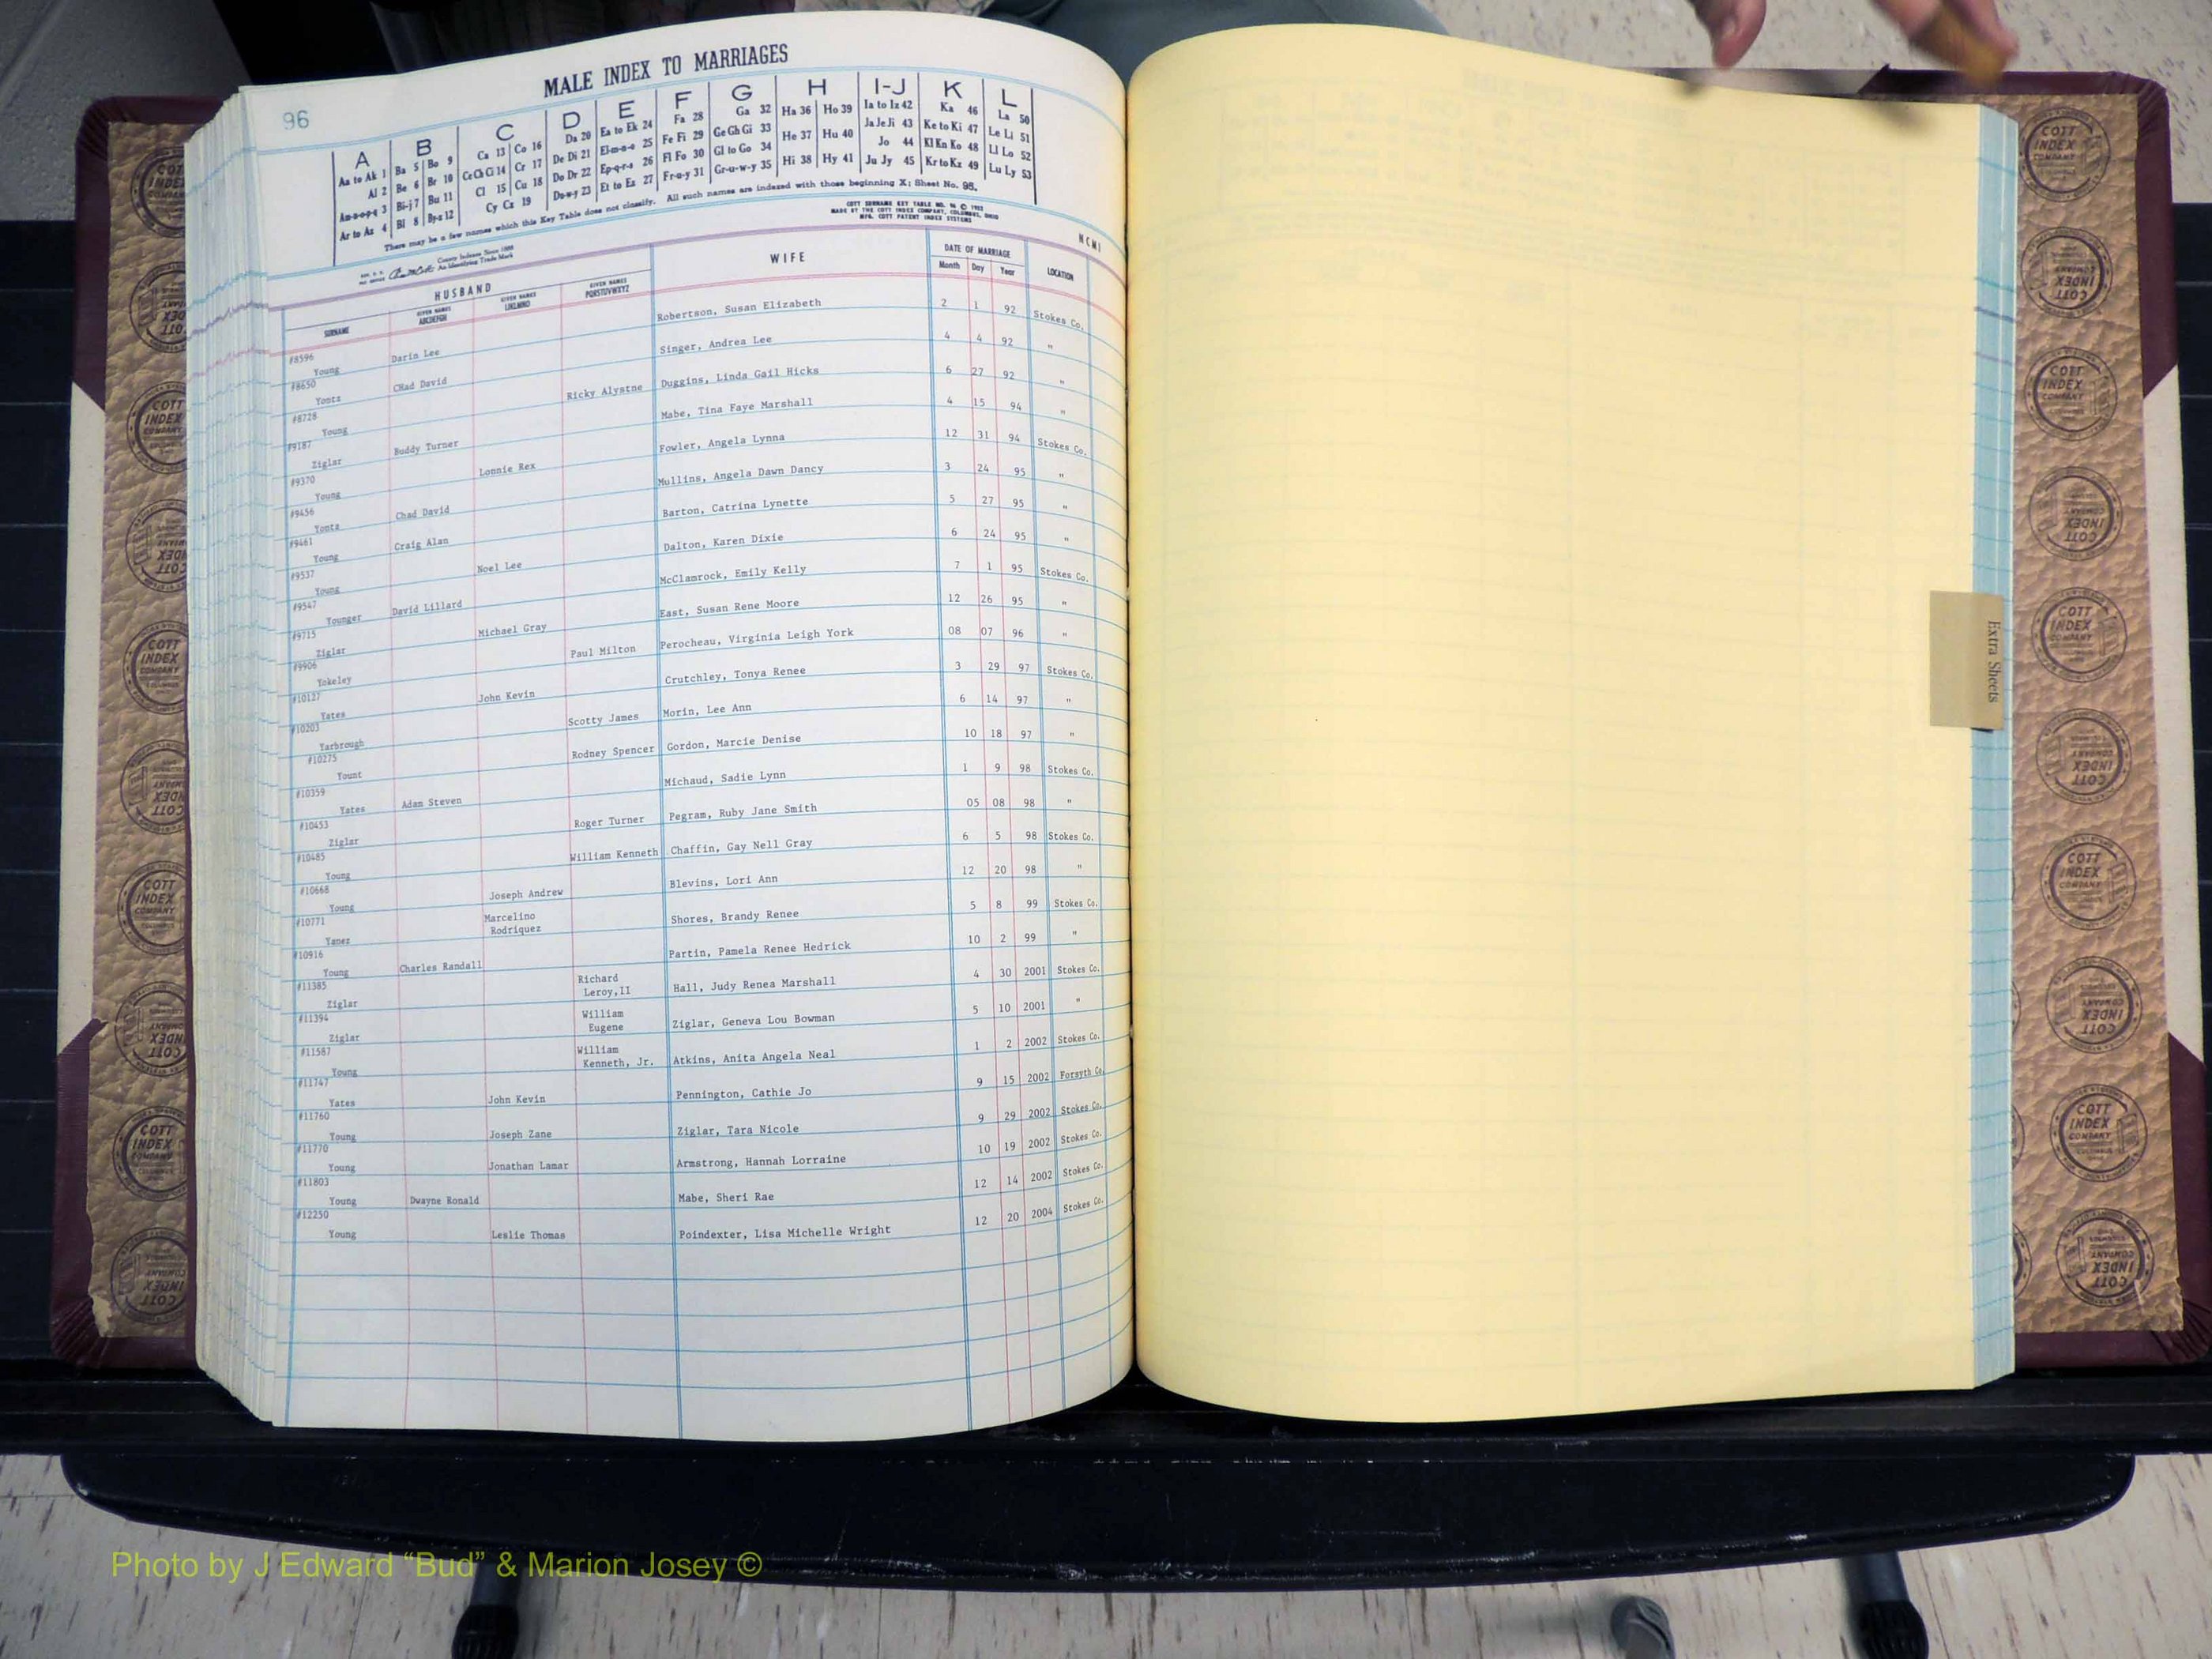 96
MALE INDEX TO MARRIAGES
A B C D E F G H I-J K L
Aa to Ak 1 Ba 5 Bo 9 Ca 13 Co 16 Da 20 Ea to Ek 24 Fa 28 Ga 32 Ha 36 Ho 39 Ia to Iz 42 Ka 46 La 50
Al 2 Be 6 Br 10 Ce Ch Ci 14 Cr 17 De Di 21 El-m-n-o 25 Fe Fi 29 Ge Gh Gi 33 He 37 Hu 40 Ja Je Ji 43 Ke to Ki 47 Le Li 51
An-n-o-p-q 3 Bi-j 7 Bu 11 Cl 15 Cu 18 Do Dr 22 Ep-q-r-s 26 Fl Fo 30 Gl to Go 34 Hi 38 Hy 41 Jo 44 Kl Kn Ko 48 Ll Lo 52
Ar to Az 4 Bl 8 By-z 12 Cy Cz 19 Du-w-y 23 Et to Ez 27 Fr-u-y 31 Gr-u-w-y 35 Ju Jy 45 Kr to Kz 49 Lu Ly 53
There may be a few names which this Key Table does not classify. All such names are indexed with those beginning X; Sheet No. 95.
COTT SURNAME KEY TABLE NO. 96 © 1952
MADE BY THE COTT INDEX COMPANY, COLUMBUS, OHIO
MFG. COTT PATENT INDEX SYSTEMS
County Indexes Since 1888
An Identifying Trade Mark
HCMI
HUSBAND WIFE DATE OF MARRIAGE LOCATION
SURNAME GIVEN NAMES ABCDEFGH GIVEN NAMES IJKLMNO GIVEN NAMES PQRSTUVWXYZ Month Day Year
#8596
Young Darin Lee Robertson, Susan Elizabeth 2 1 92 Stokes Co.
#8650
Yontz CHad David Singer, Andrea Lee 4 4 92 "
#8728
Young Ricky Alystne Duggins, Linda Gail Hicks 6 27 92 "
#9187
Ziglar Buddy Turner Mabe, Tina Faye Marshall 4 15 94 "
#9370
Young Lonnie Rex Fowler, Angela Lynna 12 31 94 Stokes Co.
#9456
Yontz Chad David Mullins, Angela Dawn Dancy 3 24 95 "
#9461
Young Craig Alan Barton, Catrina Lynette 5 27 95 "
#9537
Young Noel Lee Dalton, Karen Dixie 6 24 95 "
#9547
Younger David Lillard McClamrock, Emily Kelly 7 1 95 Stokes Co.
#9715
Ziglar Michael Gray East, Susan Rene Moore 12 26 95 "
#9906
Yokeley Paul Milton Perocheau, Virginia Leigh York 08 07 96 "
#10127
Yates John Kevin Crutchley, Tonya Renee 3 29 97 Stokes Co.
#10203
Yarbrough Scotty James Morin, Lee Ann 6 14 97 "
#10275
Yount Rodney Spencer Gordon, Marcie Denise 10 18 97 "
#10359
Yates Adam Steven Michaud, Sadie Lynn 1 9 98 Stokes Co.
#10453
Ziglar Roger Turner Pegram, Ruby Jane Smith 05 08 98 "
#10485
Young William Kenneth Chaffin, Gay Nell Gray 6 5 98 Stokes Co.
#10668
Young Joseph Andrew Blevins, Lori Ann 12 20 98 "
#10771 Marcelino
Yanez Rodriquez Shores, Brandy Renee 5 8 99 Stokes Co.
#10916
Young Charles Randall Partin, Pamela Renee Hedrick 10 2 99 "
#11385 Richard
Ziglar Leroy,II Hall, Judy Renea Marshall 4 30 2001 Stokes Co.
#11394 William
Ziglar Eugene Ziglar, Geneva Lou Bowman 5 10 2001 "
#11587 William
Young Kenneth, Jr. Atkins, Anita Angela Neal 1 2 2002 Stokes Co.
#11747
Yates John Kevin Pennington, Cathie Jo 9 15 2002 Forsyth Co.
#11760
Young Joseph Zane Ziglar, Tara Nicole 9 29 2002 Stokes Co.
#11770
Young Jonathan Lamar Armstrong, Hannah Lorraine 10 19 2002 Stokes Co.
#11803
Young Dwayne Ronald Mabe, Sheri Rae 12 14 2002 Stokes Co.
#12250
Young Leslie Thomas Poindexter, Lisa Michelle Wright 12 20 2004 Stokes Co.
Extra Sheets
COTT INDEX COMPANY
Photo by J Edward “Bud” & Marion Josey ©